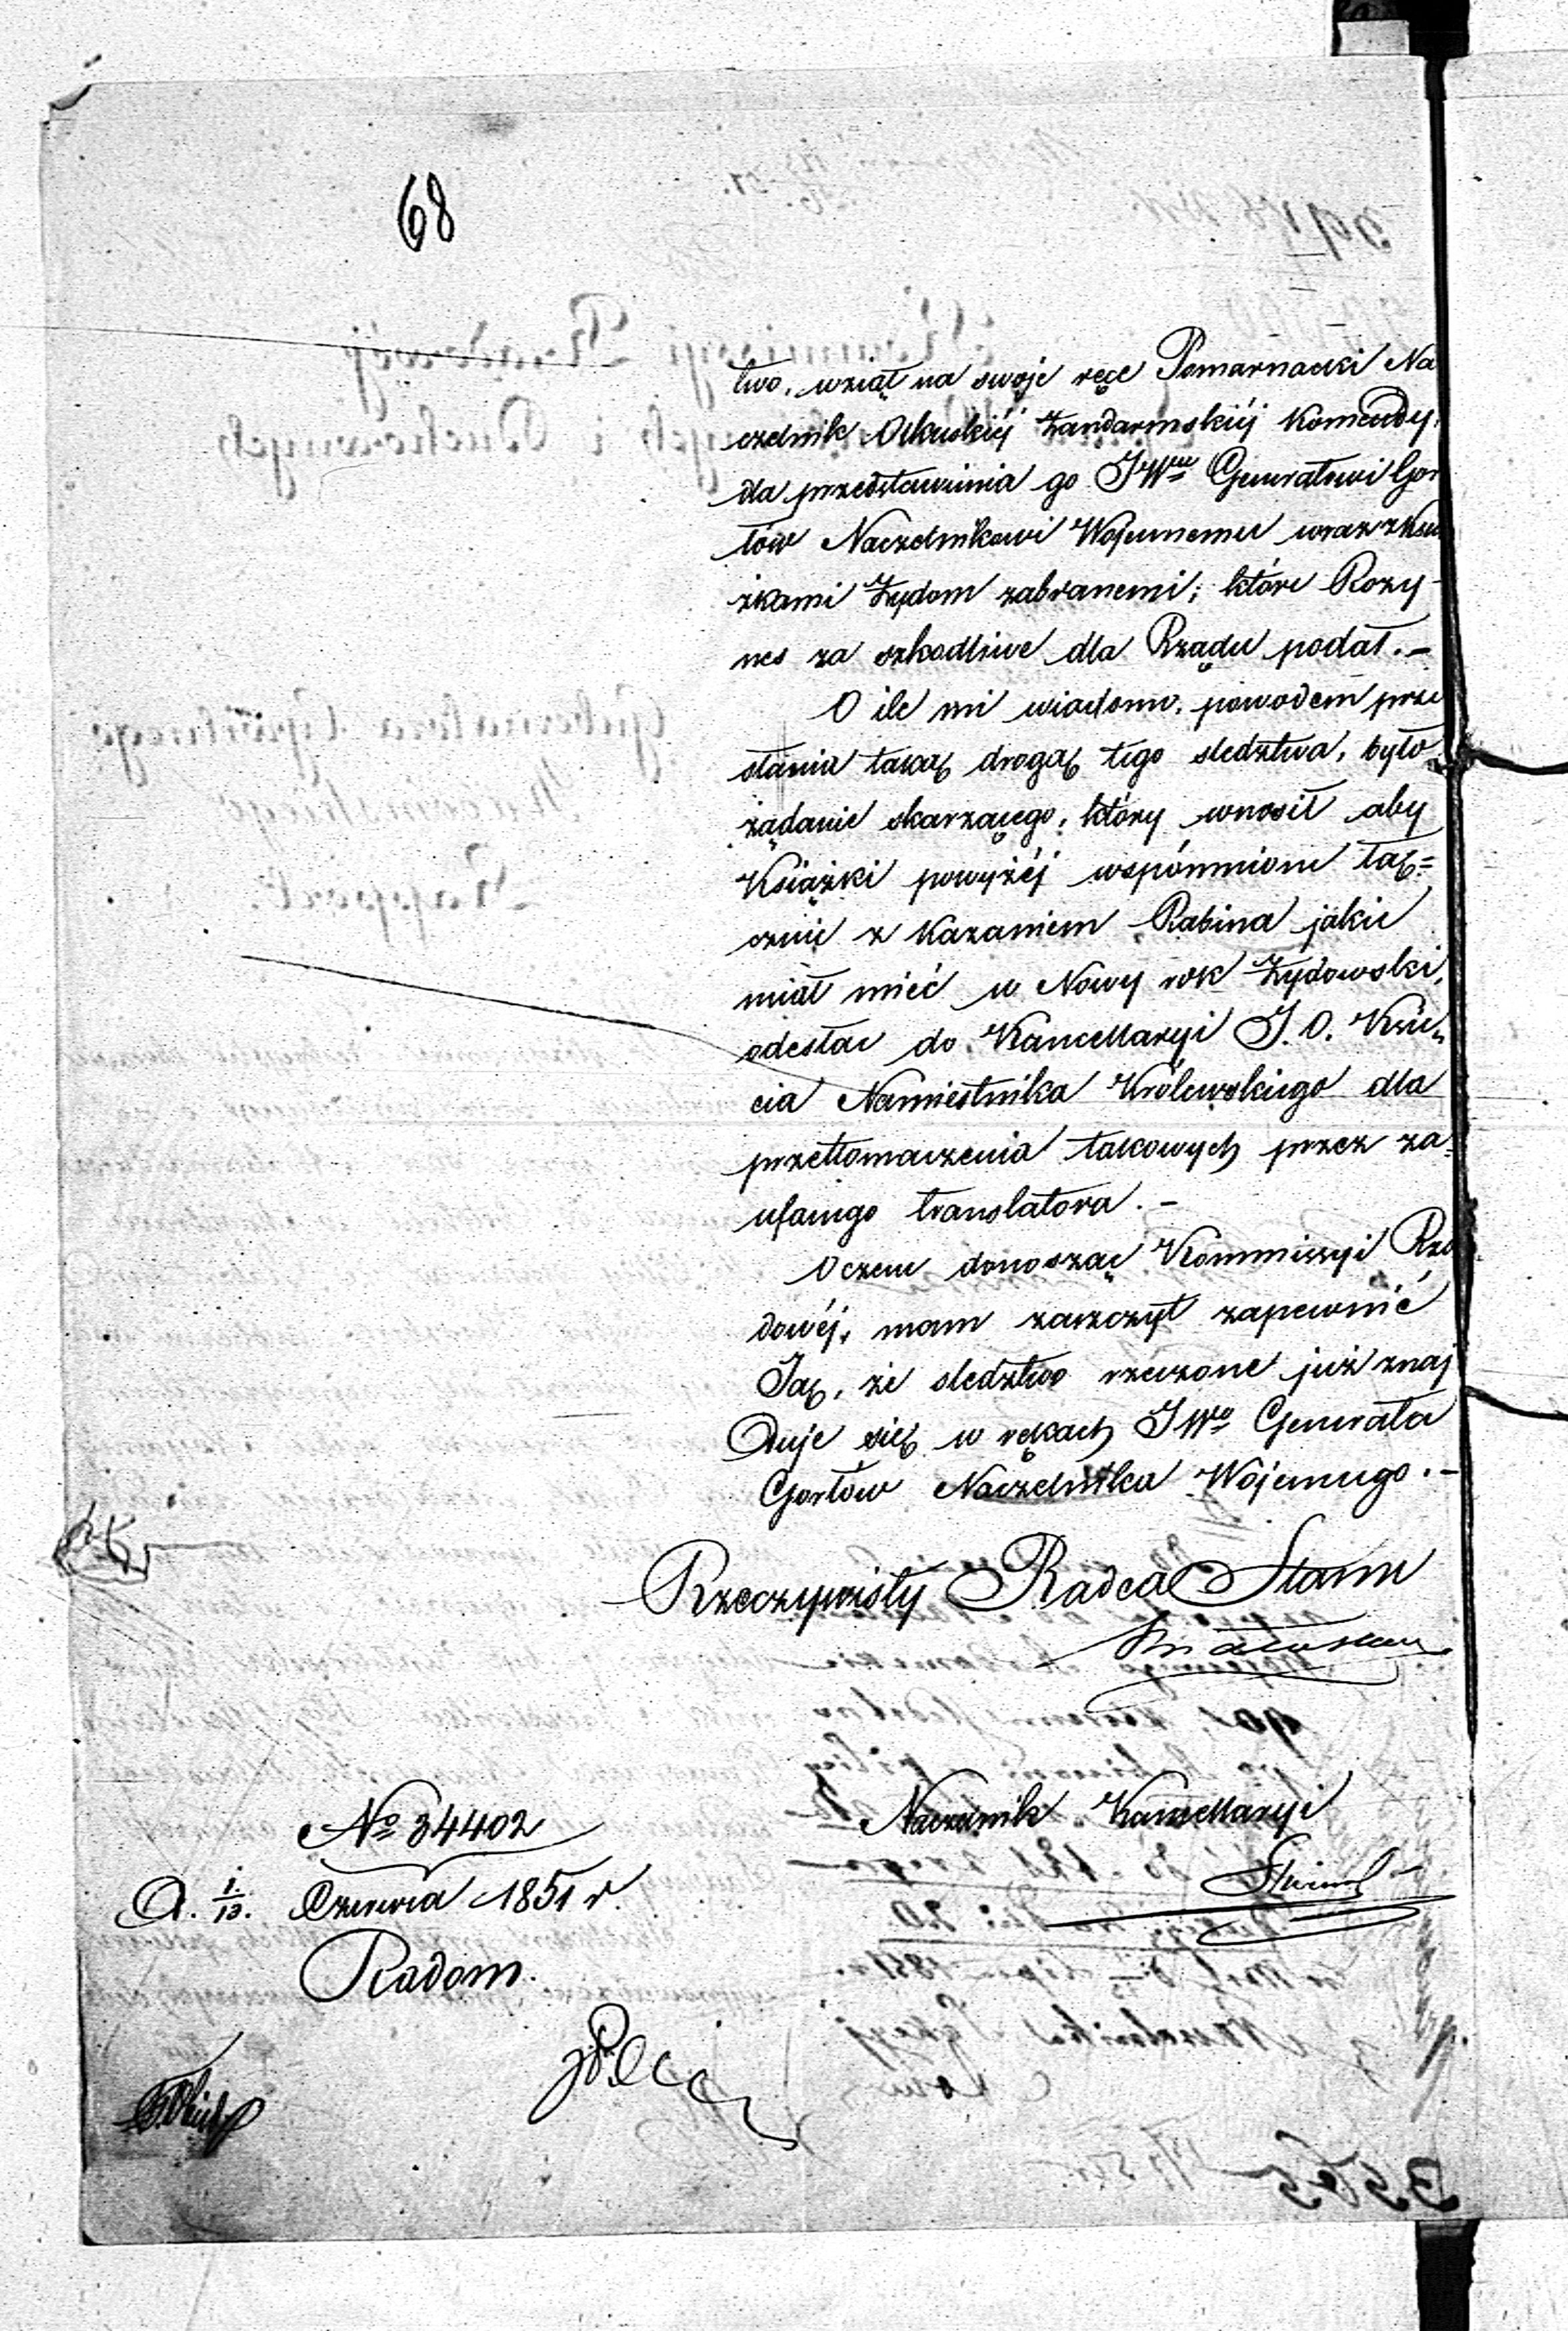 68
two, wziął na swoje ręce Pomarnacki Na
czelnik Olkuskiéj Żandarmskiéj Komendy,
dla przedstawienia go JWmu Generałowi Gor
łów Naczelnikowi Wojennemu wraz z Ksią
żkami Żydom zabranemi, które Rozy-
nes za szkodliwe dla Rządu podał.-
O ile mi wiadomo, powodem prze
słania taką drogą tego sledztwa, było
żądanie skarzącego, który wnosił aby
Książki powyżéj wspomnione łą=
cznie z Kazaniem Rabina jakie
miał mieć w Nowy rok Żydowski,
odesłać do Kancellaryi J. O. Księ
cia Namiestnika Królewskiego dla
przetłomaczenia takowych przez za=
ufanego translatora.-
O czem donosząc Kommissyi Rzą
dowéj, mam zaszczyt zapewnić
Ją, że sledztwo rzeczone już znaj
duje się w rękach JWo Generała
Gorłow Naczelnika Wojennego.-
Rzeczywisty Radca Stanu
Naczelnik Kancellaryi
No 34402
d. 1/13. Czerwca 1851 r.
Radom.